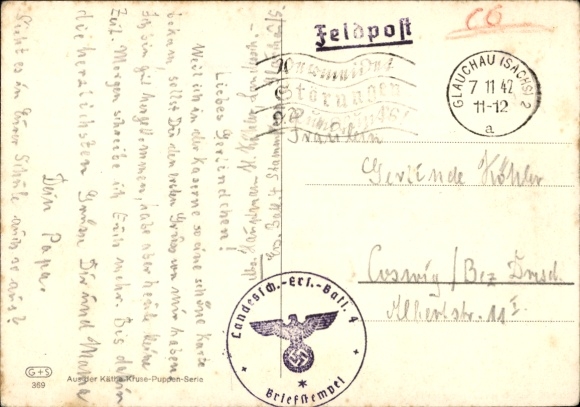 Feldpost
C6
GLAUCHAU (SACHS) 2
7 11 42
11-12
a
Vermeidet
Störungen
Fräulein
Gerlinde Köhler
Coswig / Bez Dresd.
Albertstr. 11 I
Landessch.-Ers.-Batl. 4
Briefstempel
Liebes Gerlindchen!
Weil ich in der Kaserne so eine schöne Karte
bekam, sollst Du den ersten Gruss von mir haben
Ich bin gut hergekommen, habe aber heute keine
Zeit. Morgen schreibe ich Euch mehr. Bis dahin
die herzlichsten Grüsse Dir und Mama
Dein Papa.
Sieht es in Eurer Schule auch so aus?
G+S
369
Aus der Käthe Kruse-Puppen-Serie